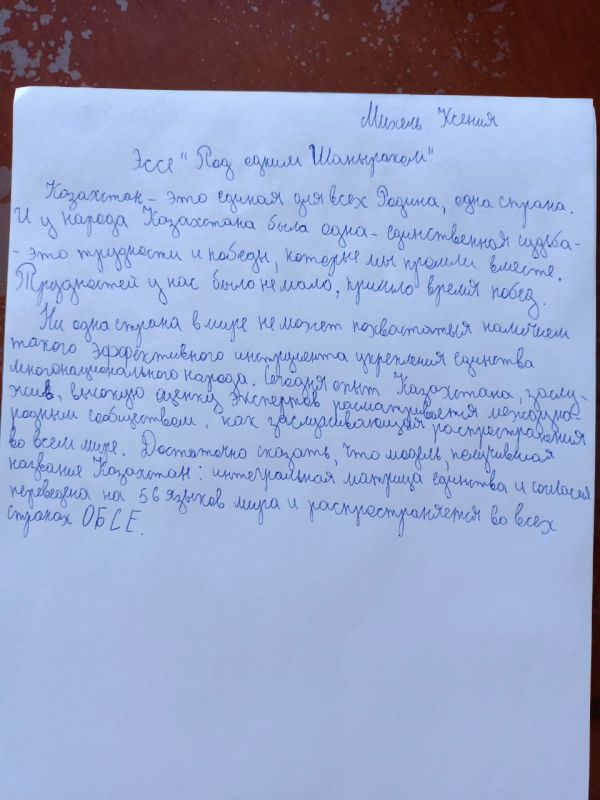 Михель Ксения
Эссе "Под одним Шаныраком"
Казахстан - это единая для всех Родина, одна страна.
И у народа Казахстана была одна - единственная судьба-
- это трудности и победы, которые мы прошли вместе.
Трудностей у нас было не мало, пришло время побед.
Ни одна страна в мире не может похвастаться наличием
такого эффективного инструмента укрепления единства
многонационального народа. Сегодня опыт Казахстана, заслу-
жив, высокую оценку экспертов рассматривается междуна-
родным сообществом, как заслуживающая распространения
во всем мире. Достаточно сказать, что модель, получившая
название Казахстан: интегральная матрица единства и согласия
переведена на 56 языков мира и распространяется во всех
странах ОБСЕ.